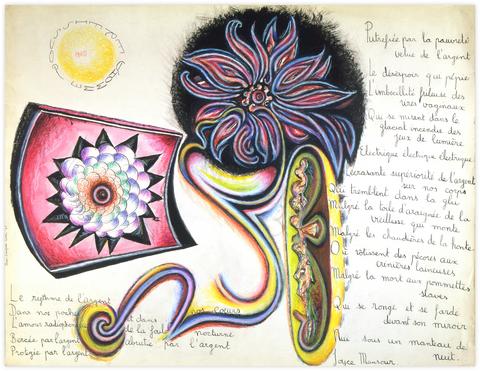 Putréfiée par la pauvreté
velue de l'argent
Le désespoir que pépie
L'imbécillité frileuse des
rires vaginaux
Qui se mirent dans le
glacial incendie des
jeux de lumière
Electrique électrique électrique
L'écrasante supériorité de l'argent
sur nos corps
Qui tremblent dans la glu
Malgré la toile d'araignée de la
vieillesse qui monte
Malgré les chaudières de la honte
Où rôtissent des pécores aux
crinières laineuses
Malgré la mort aux pommettes
slaves
Qui se ronge et se farde
devant son miroir
Nue sous un manteau de
nuit.
Joyce Mansour.
Le rythme de l'argent
Dans nos poches et dans nos cœurs
L'amour radiophonique de la fade nocturne
Bercée par l'argent abrutie par l'argent
Protégée par l'argent